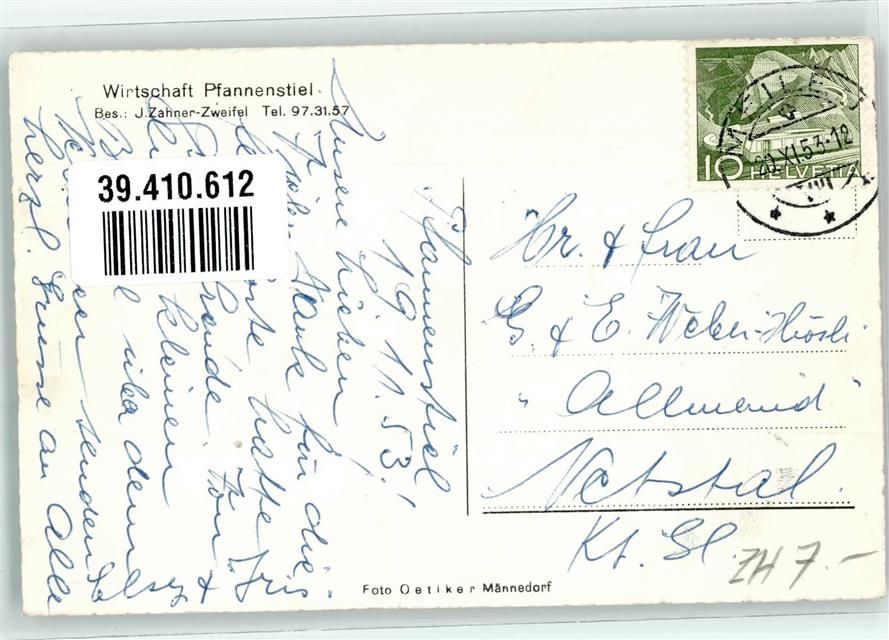 Wirtschaft Pfannenstiel
Bes.: J. Zahner-Zweifel Tel. 97.31.57
39.410.612
Pfannenstiel
19.11.53!
Unsere Lieben!
Vielen Dank für die
hatte Iris
Freude. Von
kleinen
über dem
senden
herzl. Grüsse an Alle
MEILEN
20.XI.53-12
10 HELVETIA
Hr. & Frau
G. & E. Weber-Hösli
"Allmeind"
Netstal.
Kt. Gl.
ZH 7.-
Foto Oetiker Männedorf